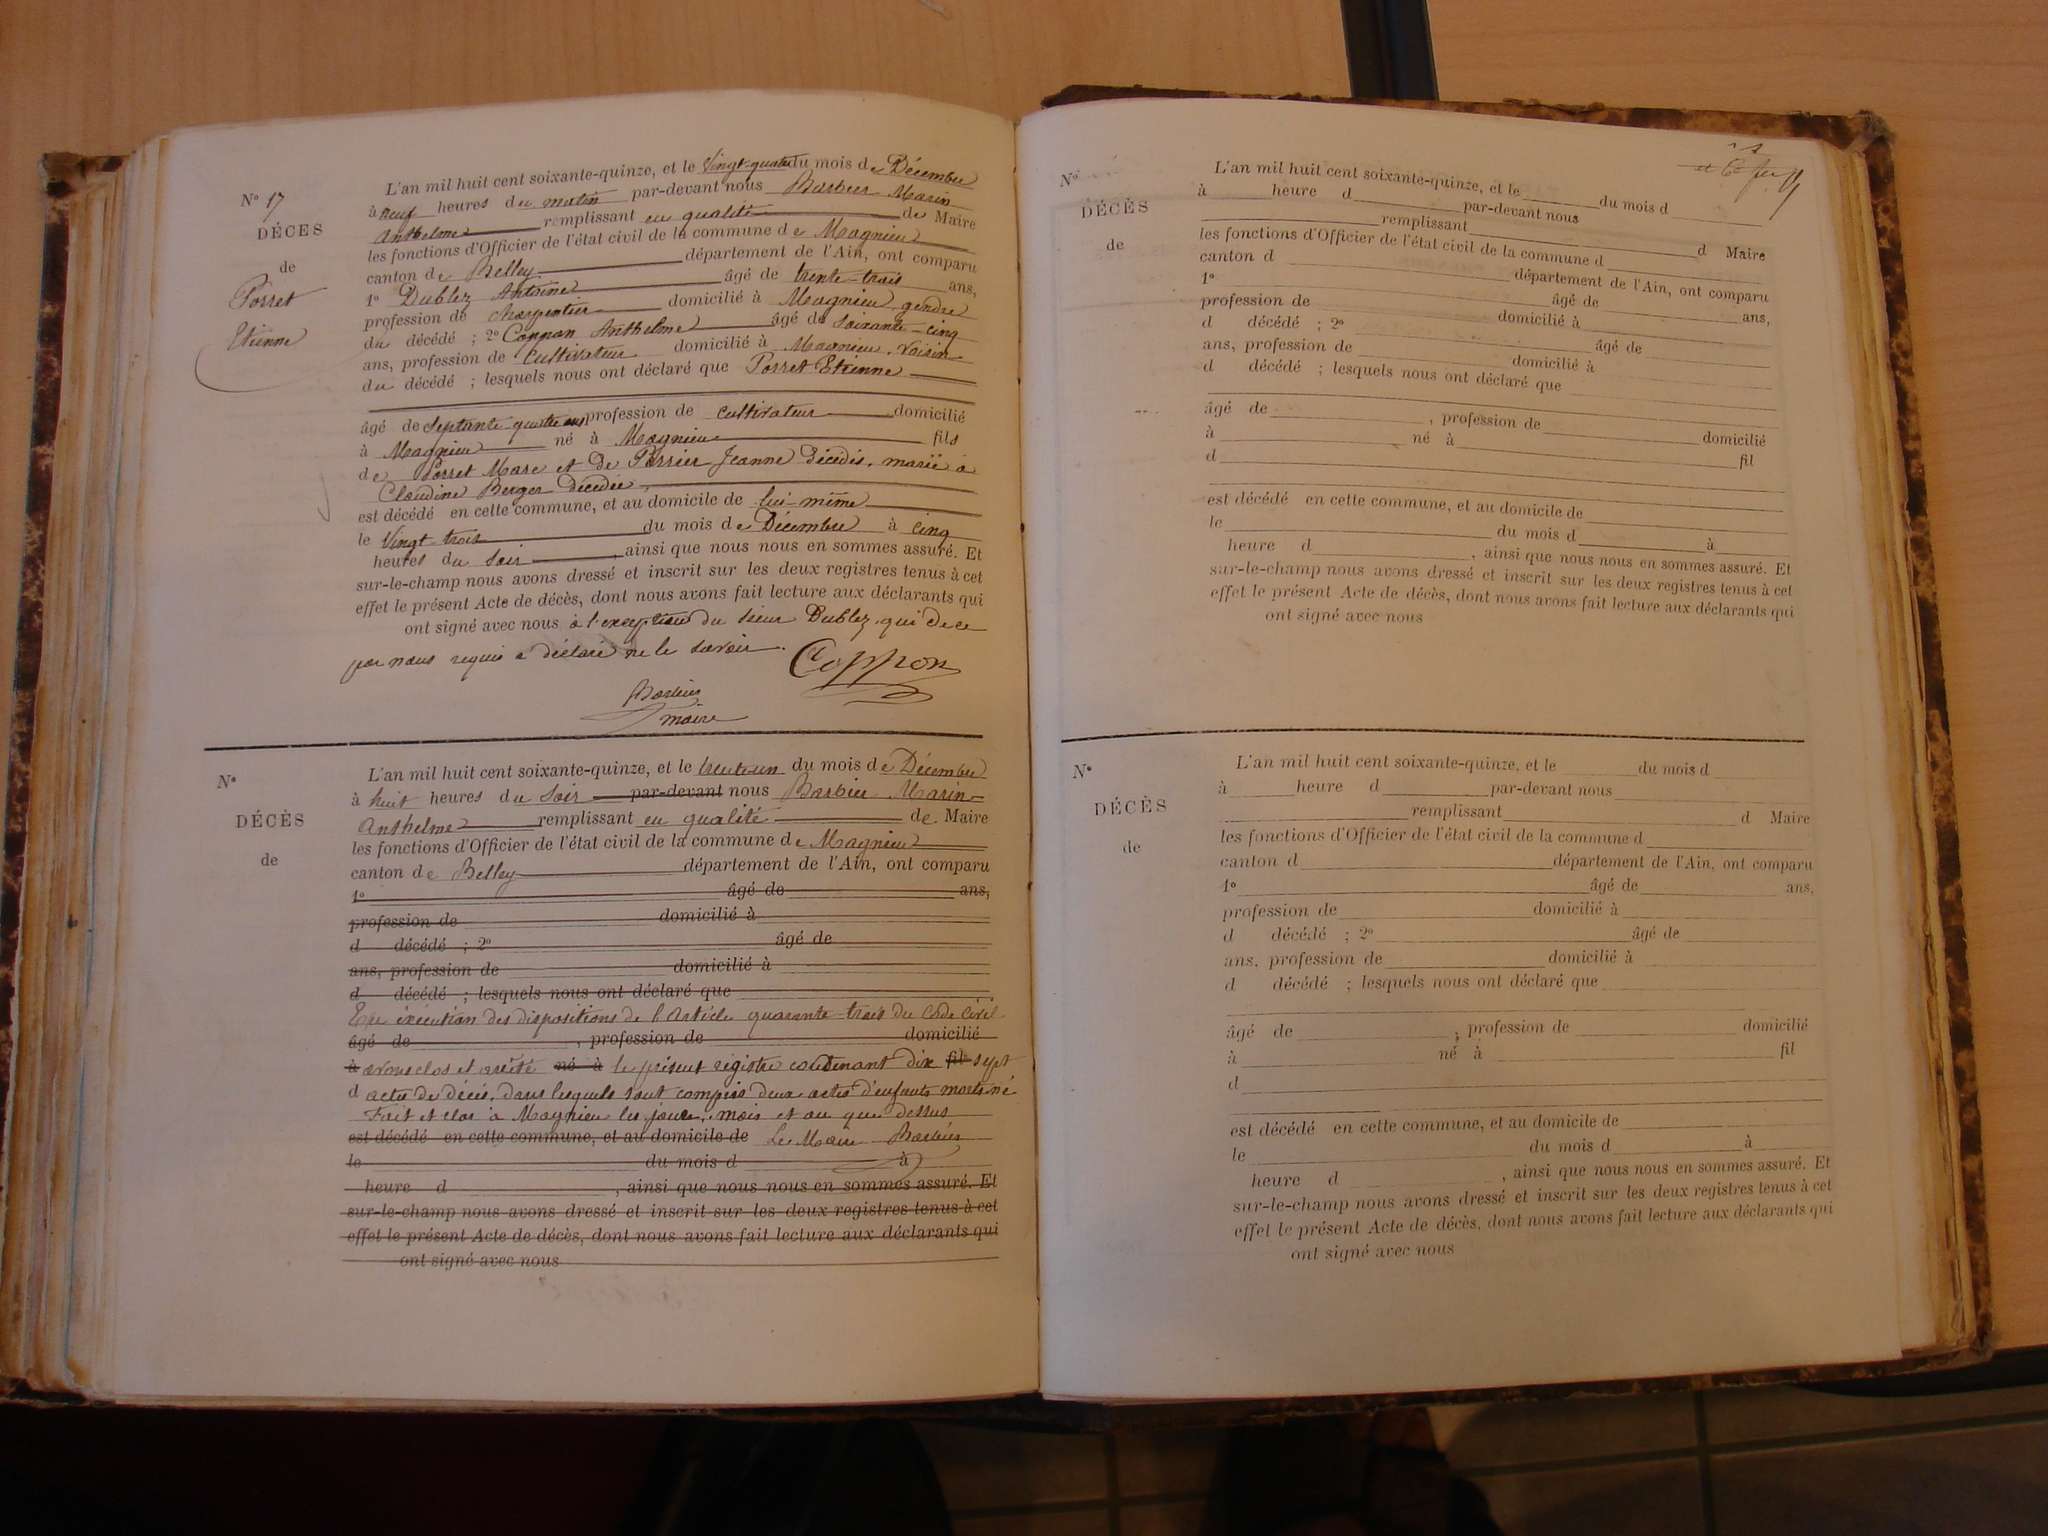 N° 17
DÉCES
de
Porret
Etienne
L'an mil huit cent soixante-quinze, et le Vingt-quatre du mois de Décembre
à neuf heures du matin par-devant nous Barbier Marin
Anthelme remplissant en qualité de Maire
les fonctions d'Officier de l'état civil de la commune de Magnieu
canton de Belley département de l'Ain, ont comparu
1° Dublez Antoine âgé de trente-trois ans,
profession de charpentier domicilié à Magnieu, gendre
du décédé ; 2° Anthelme âgé de soixante-cinq
ans, profession de Cultivateur domicilié à Magnieu, voisin
du décédé ; lesquels nous ont déclaré que Porret Etienne
âgé de septante-quatre ans profession de cultivateur domicilié
à Magnieu né à Magnieu fils
de Porret Marc et de Perrier Jeanne décédés, marié à
Claudine Berger décédée,
est décédé en cette commune, et au domicile de lui-même
le Vingt-trois du mois de Décembre à cinq
heures du soir, ainsi que nous nous en sommes assuré. Et
sur-le-champ nous avons dressé et inscrit sur les deux registres tenus à cet
effet le présent Acte de décès, dont nous avons fait lecture aux déclarants qui
ont signé avec nous à l'exception du sieur Dublez, qui de ce
par nous requis a déclaré ne le savoir.
Barbier
maire
N°
DÉCÈS
de
L'an mil huit cent soixante-quinze, et le trente-un du mois de Décembre
à huit heures du soir par-devant nous Barbier Marin
Anthelme remplissant en qualité de Maire
les fonctions d'Officier de l'état civil de la commune de Magnieu
canton de Belley département de l'Ain, ont comparu
1° âgé de ans,
profession de domicilié à
d décédé ; 2° âgé de
ans, profession de domicilié à
d décédé ; lesquels nous ont déclaré que
En éxécution des dispositions de l'Article quarante-trois du Code Civil
âgé de , profession de domicilié
à avons clos et arrêté né à le présent registre contenant dix fil sept
d actes de décès, dans lesquels sont compris deux actes d'enfants morts-né
Fait et clos à Magnieu les jour, mois et an que dessus
est décédé en cette commune, et au domicile de Le Maire Barbier
le du mois d à
heure d , ainsi que nous nous en sommes assuré. Et
sur-le-champ nous avons dressé et inscrit sur les deux registres tenus à cet
effet le présent Acte de décès, dont nous avons fait lecture aux déclarants qui
ont signé avec nous
N°
DÉCÈS
de
L'an mil huit cent soixante-quinze, et le du mois d
à heure d par-devant nous
remplissant d Maire
les fonctions d'Officier de l'état civil de la commune d
canton d département de l'Ain, ont comparu
1° âgé de ans,
profession de domicilié à
d décédé ; 2° âgé de
ans, profession de domicilié à
d décédé ; lesquels nous ont déclaré que
âgé de , profession de domicilié
à né à fil
d
est décédé en cette commune, et au domicile de
le du mois d à
heure d , ainsi que nous nous en sommes assuré. Et
sur-le-champ nous avons dressé et inscrit sur les deux registres tenus à cet
effet le présent Acte de décès, dont nous avons fait lecture aux déclarants qui
ont signé avec nous
N°
DÉCÈS
de
L'an mil huit cent soixante-quinze, et le du mois d
à heure d par-devant nous
remplissant d Maire
les fonctions d'Officier de l'état civil de la commune d
canton d département de l'Ain, ont comparu
1° âgé de ans,
profession de domicilié à
d décédé ; 2° âgé de
ans, profession de domicilié à
d décédé ; lesquels nous ont déclaré que
âgé de , profession de domicilié
à né à fil
d
est décédé en cette commune, et au domicile de
le du mois d à
heure d , ainsi que nous nous en sommes assuré. Et
sur-le-champ nous avons dressé et inscrit sur les deux registres tenus à cet
effet le présent Acte de décès, dont nous avons fait lecture aux déclarants qui
ont signé avec nous